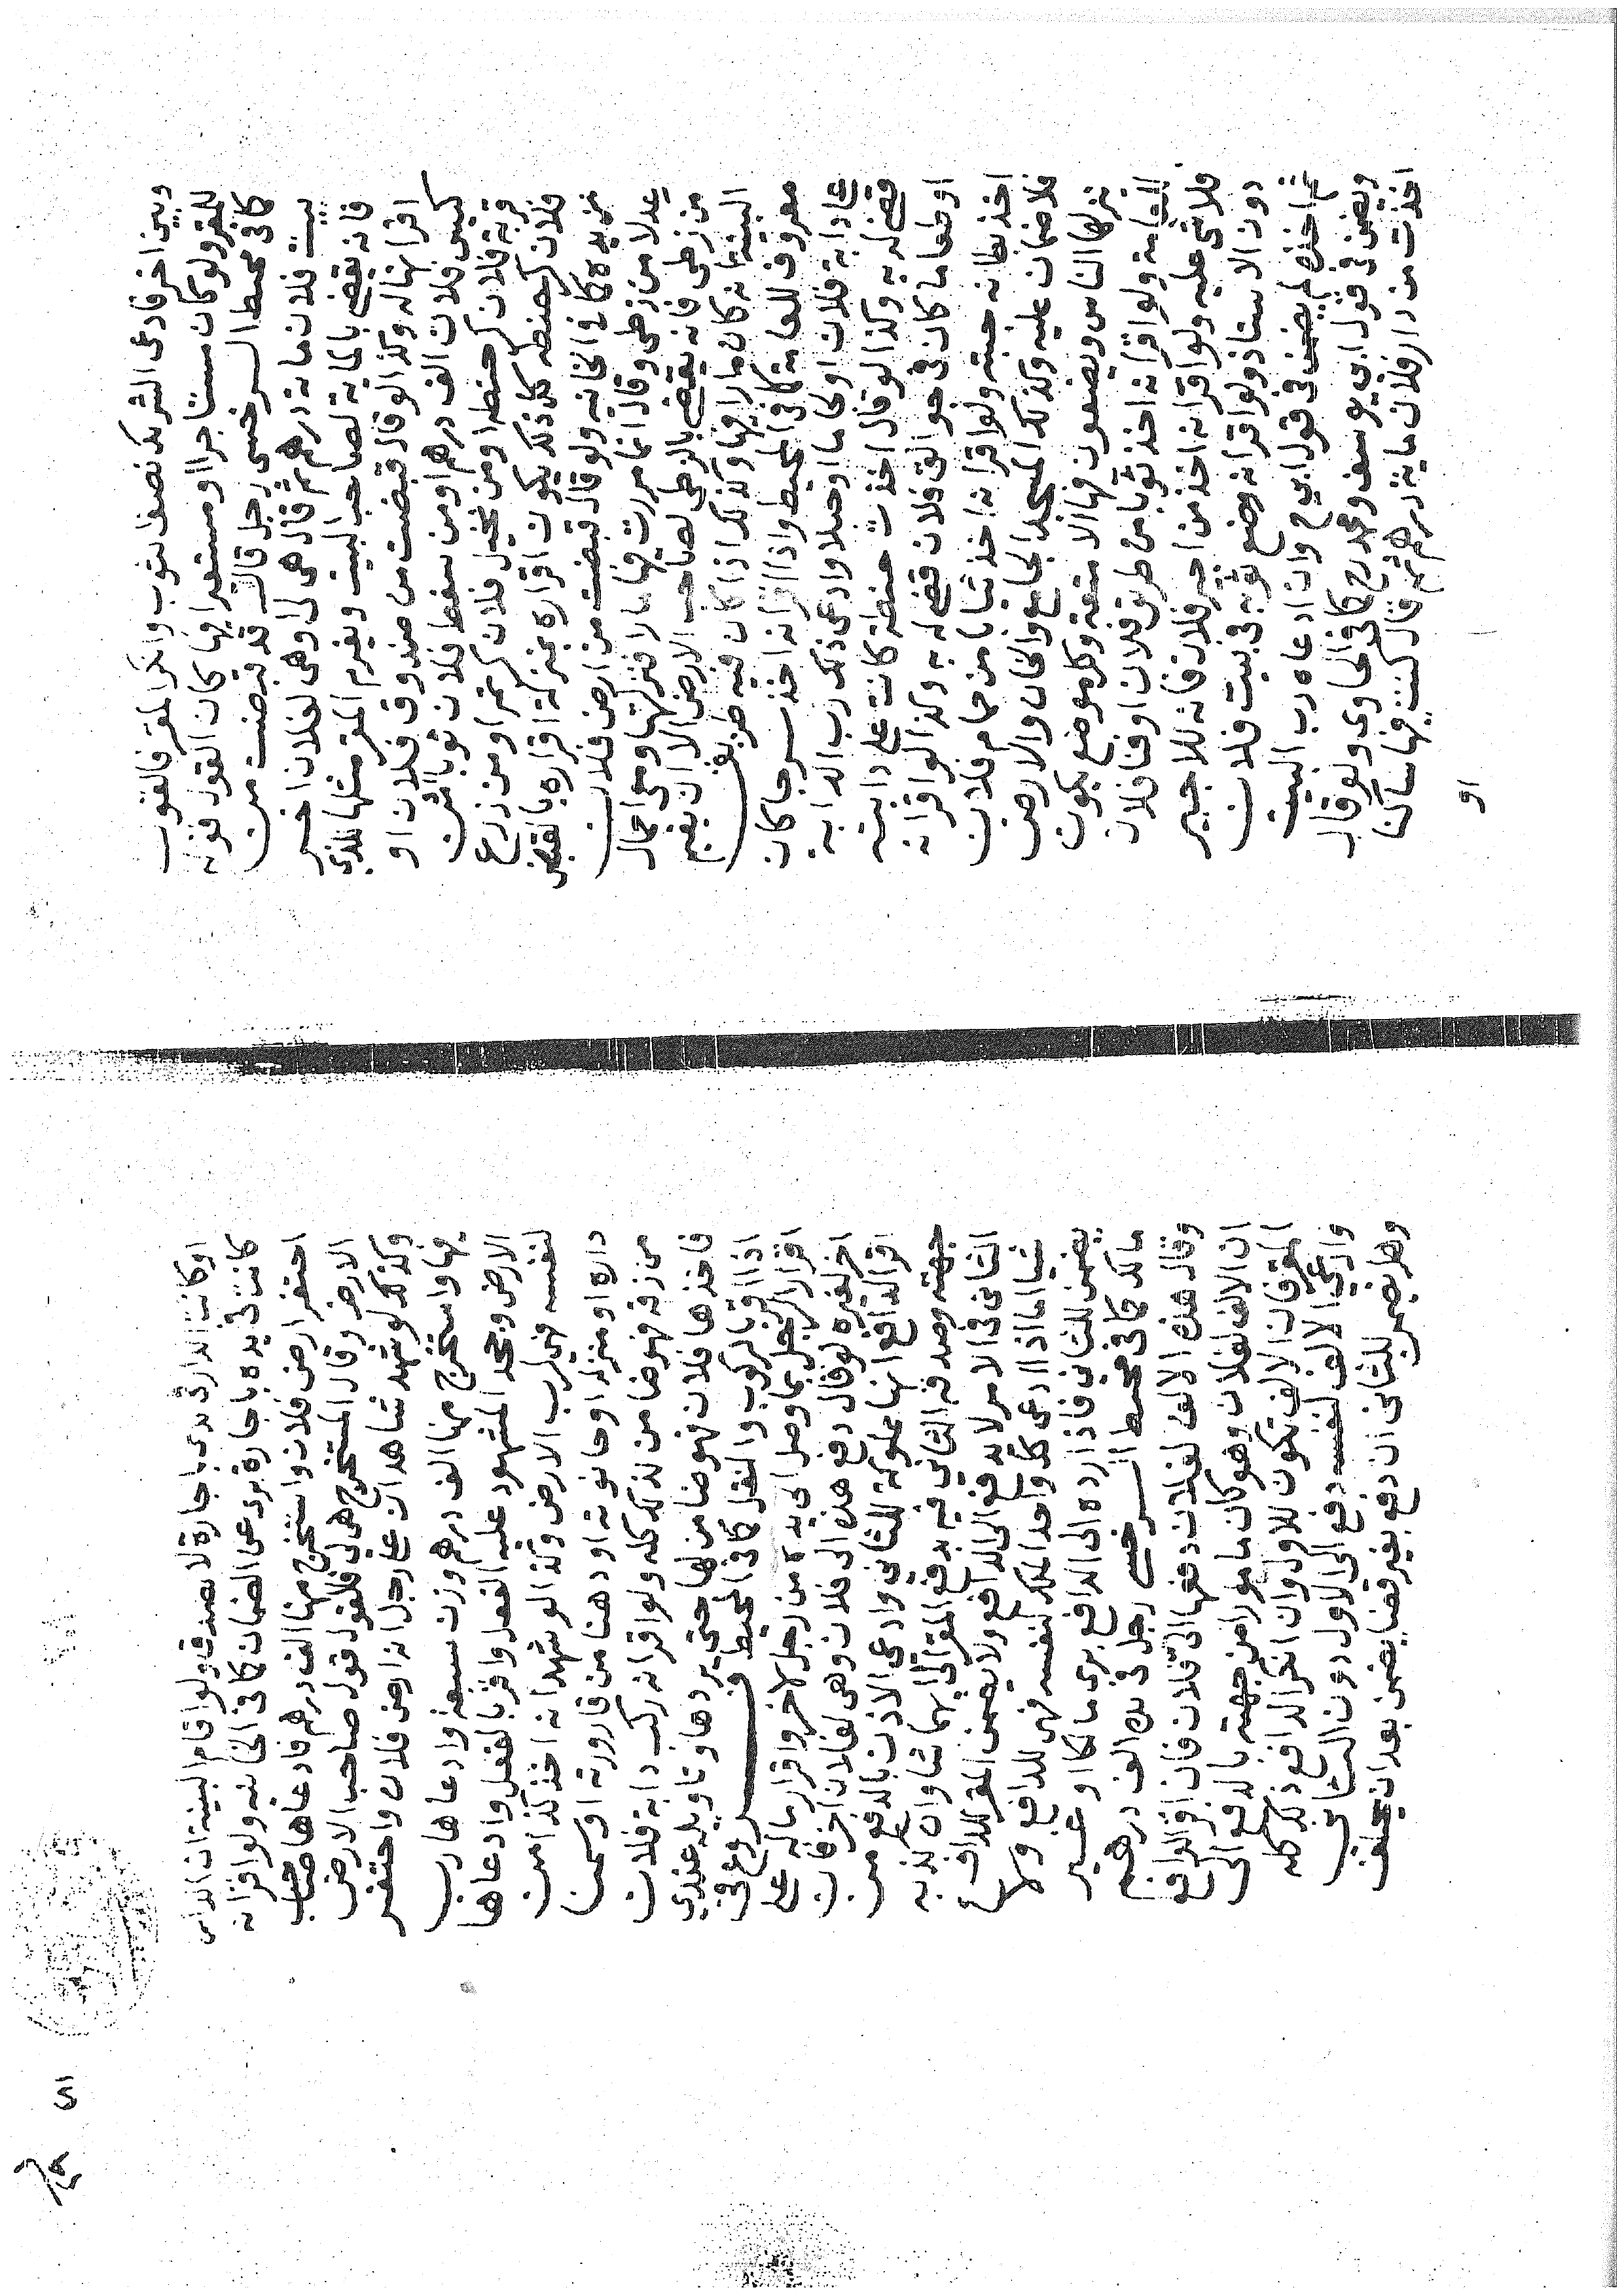 وبين اخر فادعى الشريك نصف الثوب وانكر المقر فالقول
للمقر ولو كان مستاجرا او مستعيرا فيها كان القول قوله
كما في محيط السرخسي رجل قال قد قبضت من
بيت فلان مائة درهم ثم قال هي لي او هي لفلان اخر
فانه يقضي بالمائة لصاحب البيت ويغرم المقر مثلها للذي
اقر انها له وكذا لو قال قبضت من صندوق فلان او
كيس فلان الف درهم او من سفط فلان ثوبا او من
قرية فلان كر حنطة او من نخيل فلان كر تمر او من زرع
فلان كر حنطة كل ذلك يكون اقراره بمنزلة اقراره بالقبض
من يده كما في الخانية ولو قال قبضت من ارض فلان
عدلا من زطي وقال انما مررت فيها مارا فنزلتها ومعي احمال
من زطي فانه يقضي بالزطي لصاحب الارض الا ان يقيم
البينة انه كان مارا فيها وكذلك اذا كان فيه طريق
معروف للعامة كما في المحيط واذا اقر انه اخذ سرجا كان
على دابة فلان او لجاما او حبلا وادعى ذلك رب الدابة
قضي له به وكذا لو قال اخذت حنطة كانت على دابته
او طعاما كان في جوالق فلان قضي له به وكذا لو اقر انه
اخذ بطانة جبته ولو اقر انه اخذ ثيابا من حمام فلان
فلا ضمان عليه وكذلك المسجد الجامع والخان والارض
ينزلها الناس ويضعون فيها الامتعة وكل موضع يكون
للعامة ولو اقر انه اخذ ثوبا من طريق فلان او فناء فلان
فلا شئ عليه ولو اقر انه اخذ من اجير فلان فانه للاجير
دون الاستاذ ولو اقر انه وضع ثوبه في بيت فلان
ثم اخذه لم يضمن في قول ابي ح وان ادعاه رب البيت
ويضمن في قول ابي يوسف ومحمد رح كما في الحاوي ولو قال
اخذت من دار فلان مائة درهم ثم قال كنت فيها ساكنا
او
او كانت الدار في يدي باجارة لا يصدق ولو اقام البينة ان الدار
كانت في يده باجارة برئ عن الضمان كما في الخانية ولو اقر انه
احتفر ارض فلان واستخرج منها الف درهم فادعاها صاحب
الارض وقال المستخرج هي لي فالقول قول صاحب الارض
وكذلك لو شهد شاهدان على رجل انه ارض فلان واحتفر
فيها واستخرج منها الف درهم وزن سبعة وادعاها رب
الارض وجحد المشهود عليه الفعل او اقر بالفعل وادعاها
لنفسه فهي لرب الارض وكذا لو شهد انه اخذ كذا من
داره او منزله او حانوته او دهنا من قارورته او سمنا
من زقه فهو ضامن لذلك كله ولو اقر انه ركب دابة فلان
فاخذها فلان فهو ضامن لها حتى يردها وتاويله عندي
اذا اقر بالركوب والنقل كما في المحيط فروع في
اقرار الرجل بما وصل الى يده من رجل لاخر واقرار ماله على
اخر لغيره لو قال دفع هذه الى فلان وهي لفلان اخر فان
اقر الدافع انها مملوكة للثاني وادعى الاذن بالدفع من
جهته وصدقه الثاني فيه يدفع المقر الى ايهما شاء وان كذبه
الثاني في الامر لا يدفع الى الدافع ولا يضمن المقر للدافع
شيئا اما اذا ادعى كل واحد الملك لنفسه فهي للدافع ولا
يضمن للثاني فاذا رده الى الدافع برئ مالكا او غير
مالك كما في محيط السرخسي رجل في يده الف درهم
وقال هذه الالف لفلان دفعها الي فلان فان اقر الدافع
ان الالف لفلان وهو كان مامورا من جهته بالدفع الى
المقر فان الالف تكون للاول وان انكر الدافع ذلك كله
وادعى الالف لنفسه دفع الى الاول دون الثاني
وهل يضمن للثاني ان دفع بغير قضا يضمن بعد ان يحلف